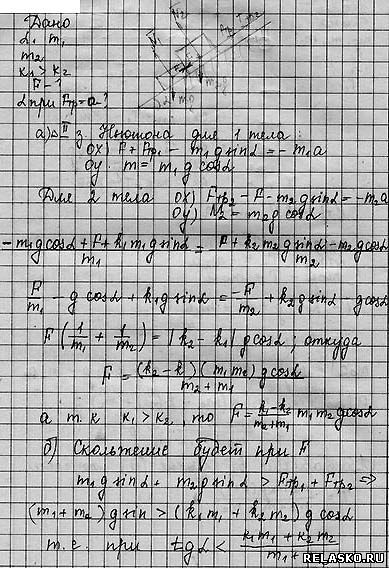 Дано
α, m₁
m₂
k₁ > k₂
F - ?
α при Fтр = a - ?
а) II з. Ньютона для 1 тела:
ОХ) F + Fтр₁ - m₁g sinα = - m₁a
Оу: m = m₁ g cosα
Для 2 тела ОХ) Fтр₂ - F - m₂g sinα = - m₂a
Оу) N₂ = m₂g cosα
(-m₁g cosα + F + k₁m₁g sinα)/m₁ = (F + k₂m₂g sinα - m₂g cosα)/m₂
F/m₁ - g cosα + k₁g sinα = -F/m₂ + k₂g sinα - g cosα
F(1/m₁ + 1/m₂) = |k₂ - k₁| g cosα; откуда
F = (k₂ - k₁)(m₁m₂) g cosα/(m₂ + m₁)
а т.к k₁ > k₂, то F = (k₁ - k₂)/(m₂ + m₁) m₁m₂g cosα
б) Скольжение будет при F
m₁g sinα + m₂g sinα > Fтр₁ + Fтр₂ ⇒
(m₁ + m₂) g sin > (k₁m₁ + k₂m₂) g cosα
т.е. при tgα < (k₁m₁ + k₂m₂)/(m₁ +
RELASKO.RU